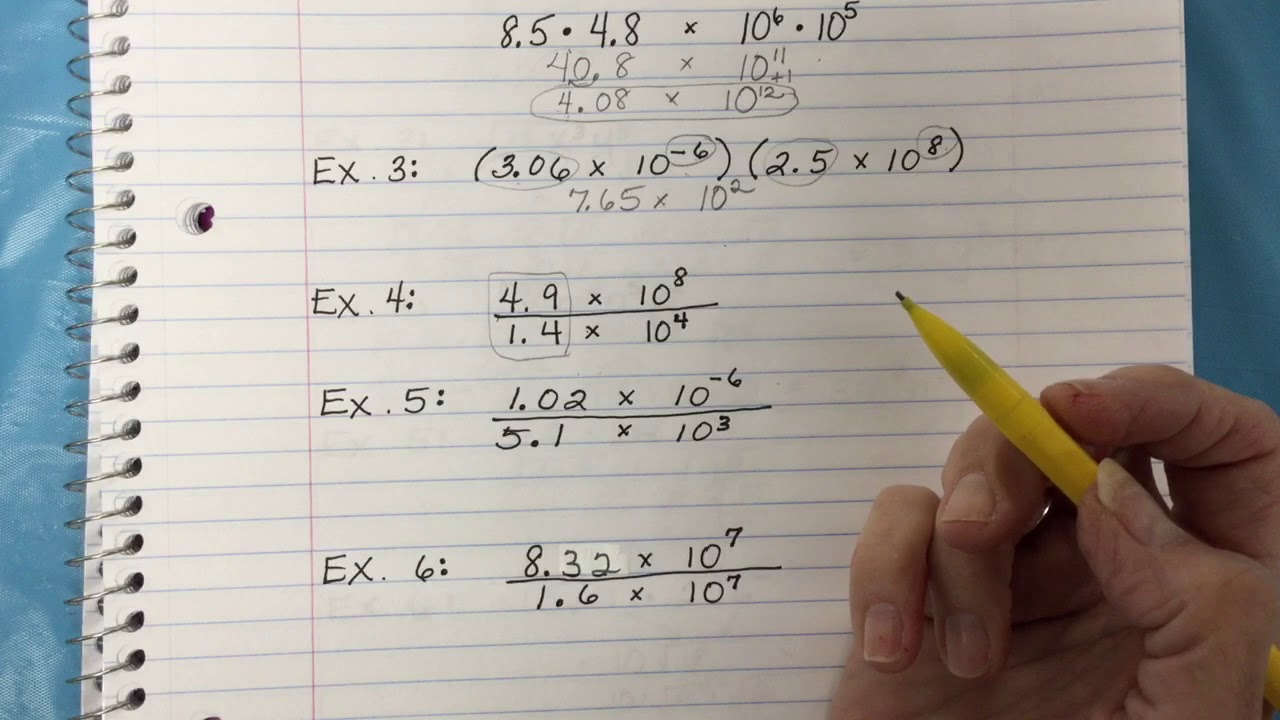 8.5 • 4.8 × 10⁶ • 10⁵
40.8 × 10¹¹
+1
4.08 × 10¹²
Ex. 3: (3.06 × 10⁻⁶) (2.5 × 10⁸)
7.65 × 10²
Ex. 4: 4.9 × 10⁸
1.4 × 10⁴
Ex. 5: 1.02 × 10⁻⁶
5.1 × 10³
Ex. 6: 8.32 × 10⁷
1.6 × 10⁷